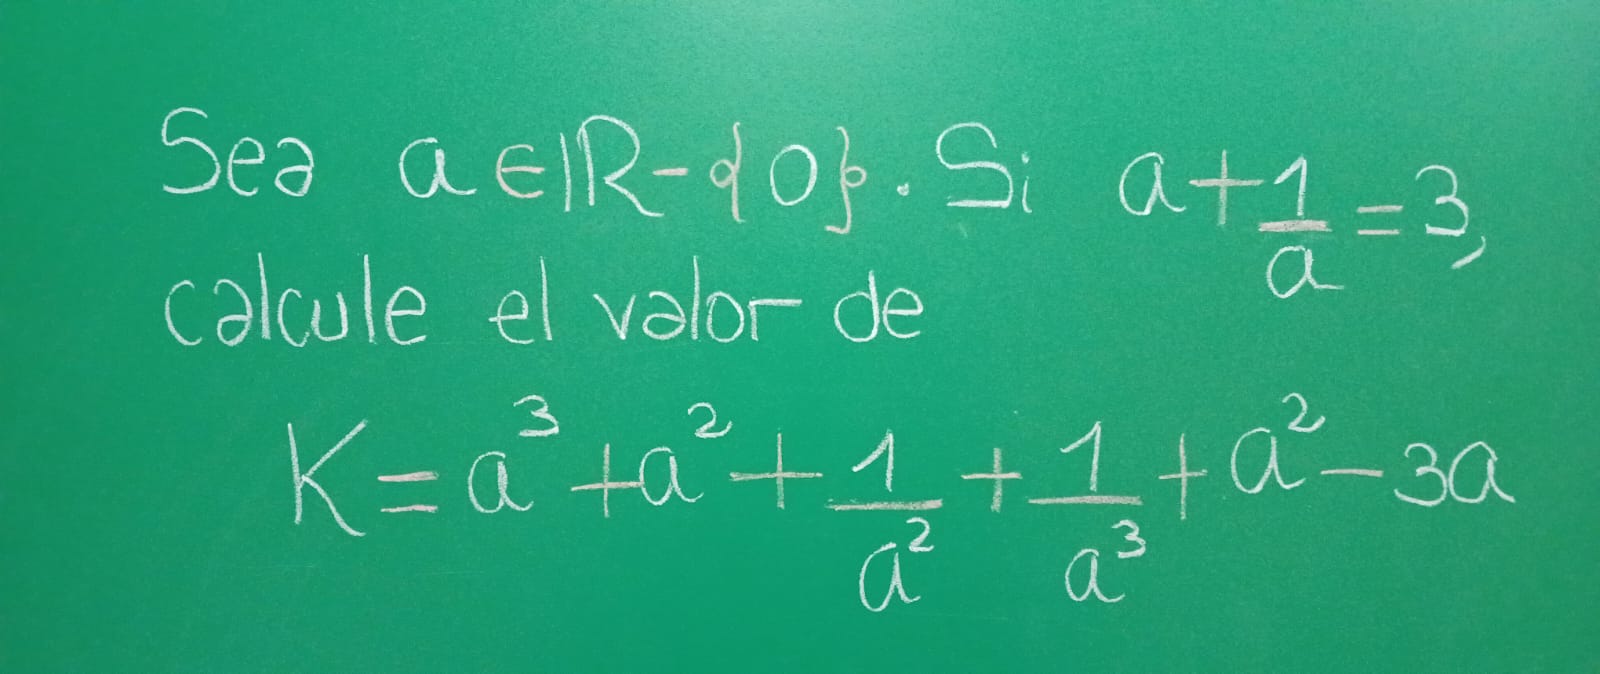 Sea a ∈ ℝ - {0}. Si a + 1/a = 3,
calcule el valor de
K = a³ + a² + 1/a² + 1/a³ + a² - 3a